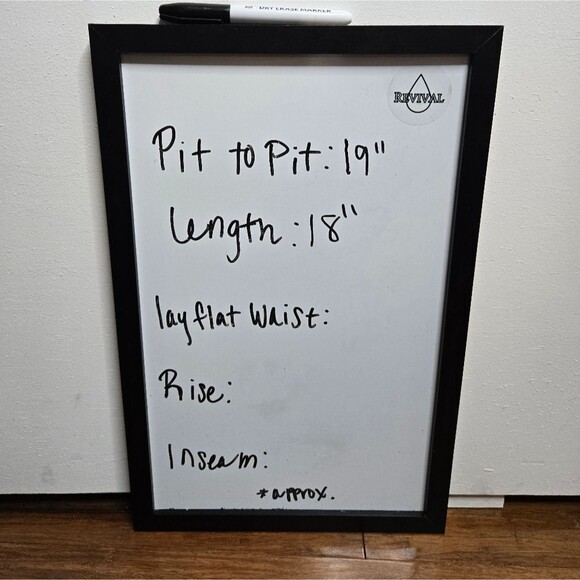 DRY ERASE MARKER
REVIVAL
Pit to Pit: 19"
length: 18"
lay flat Waist:
Rise:
Inseam:
*approx.